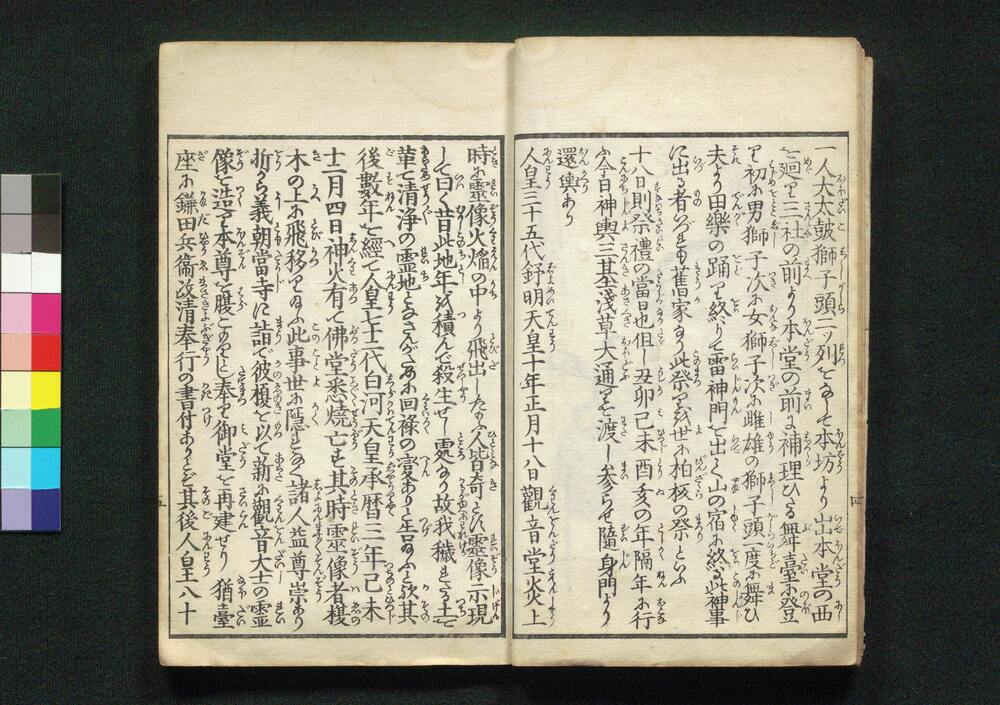 一人太太鼓獅子頭二ツ列をなして本坊より出本堂の西
を廻り三社の前より本堂の前に補理ひたる舞臺に登
り初に男獅子次に女獅子次に雌雄の獅子頭一度に舞ひ
夫より田樂の踊り終りて雷神門を出て山の宿に終る此神事
に出る者いづれも舊家なり此祭りを世に柏板の祭といふ
十八日則祭禮の當日也但し丑卯己未酉亥の年隔年に行
ふ今日神輿三基淺草大通りを渡し参らせ隨身門より
還輿あり
人皇三十五代舒明天皇十年正月十八日觀音堂炎上
時に靈像火焔の中より飛出したまふ人皆奇とす靈像示現
して曰く昔此地年を積んで殺生せし處なり故我穢れたる土を
革て清淨の霊地となさんがために回禄の変ありと告給ふと歟其
後數年を經て人皇七十二代白河天皇承暦三年己未
十二月四日神火有て佛堂悉燒亡す其時霊像者榎
木の上に飛移り給ふ此事世に隠れなく諸人益尊崇あり
折から義朝當寺に詣で彼榎を以て新に觀音大士の霊
像を造らせ本尊を腹ごめとし奉り御堂を再建せり 猶臺
座に鎌田兵衞政清奉行の書付ありとぞ其後人皇八十